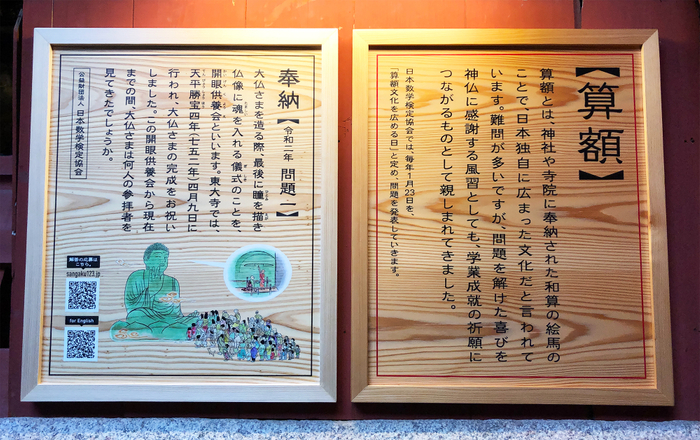 【算額】
算額とは、神社や寺院に奉納された和算の絵馬の
ことで、日本独自に広まった文化だと言われて
います。難問が多いですが、問題を解けた喜びを
神仏に感謝する風習としても、学業成就の祈願に
つながるものとして親しまれてきました。
日本数学検定協会では、毎年1月23日を、
「算額文化を広める日」と定め、問題を発表していきます。
奉納【令和二年 問題一】
大仏さまを造る際、最後に瞳を描き
仏像に魂を入れる儀式のことを、
開眼供養会といいます。東大寺では、
天平勝宝四年(七五二年)四月九日に
行われ、大仏さまの完成をお祝い
しました。この開眼供養会から現在
までの間、大仏さまは何人の参拝者を
見てきたでしょうか。
公益財団法人 日本数学検定協会
解答の応募は
こちら。
sangaku123.jp
for English